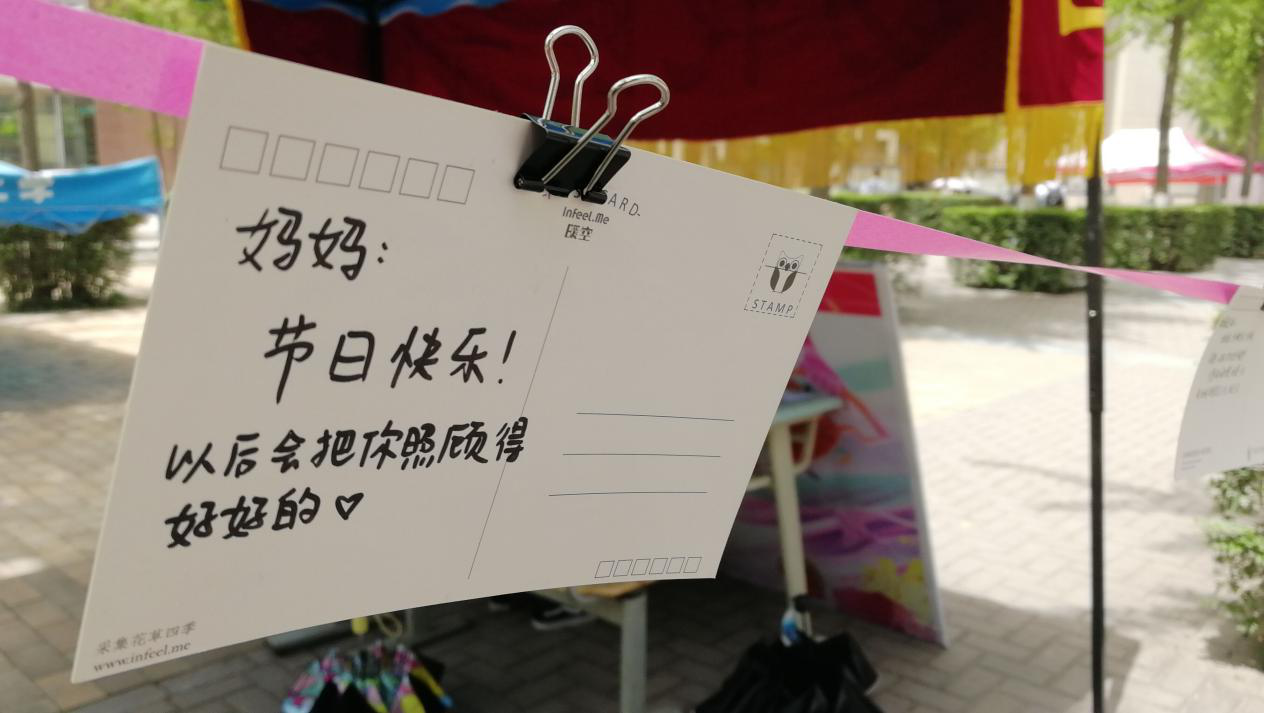 妈妈:
节日快乐!
以后会把你照顾得
好好的♡
ARD
infeel.me
STAMP
采集花草四季
www.infeel.me